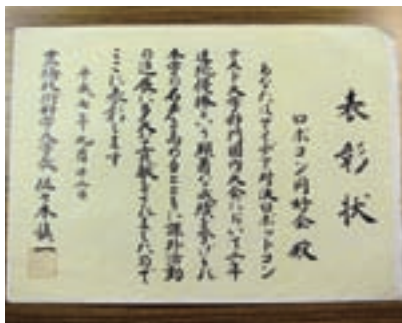 表彰状
ロボコン同好会 殿
あなたはアイデア対決ロボットコン
テスト大学部門国内大会において二年
連続優勝という顕著な成績を挙げられ
本学の名声を高めるとともに課外活動
の進展に多大な貢献をされましたので
ここに表彰します
平成七年九月十二日
豊橋技術科学大学長 佐々木慎一